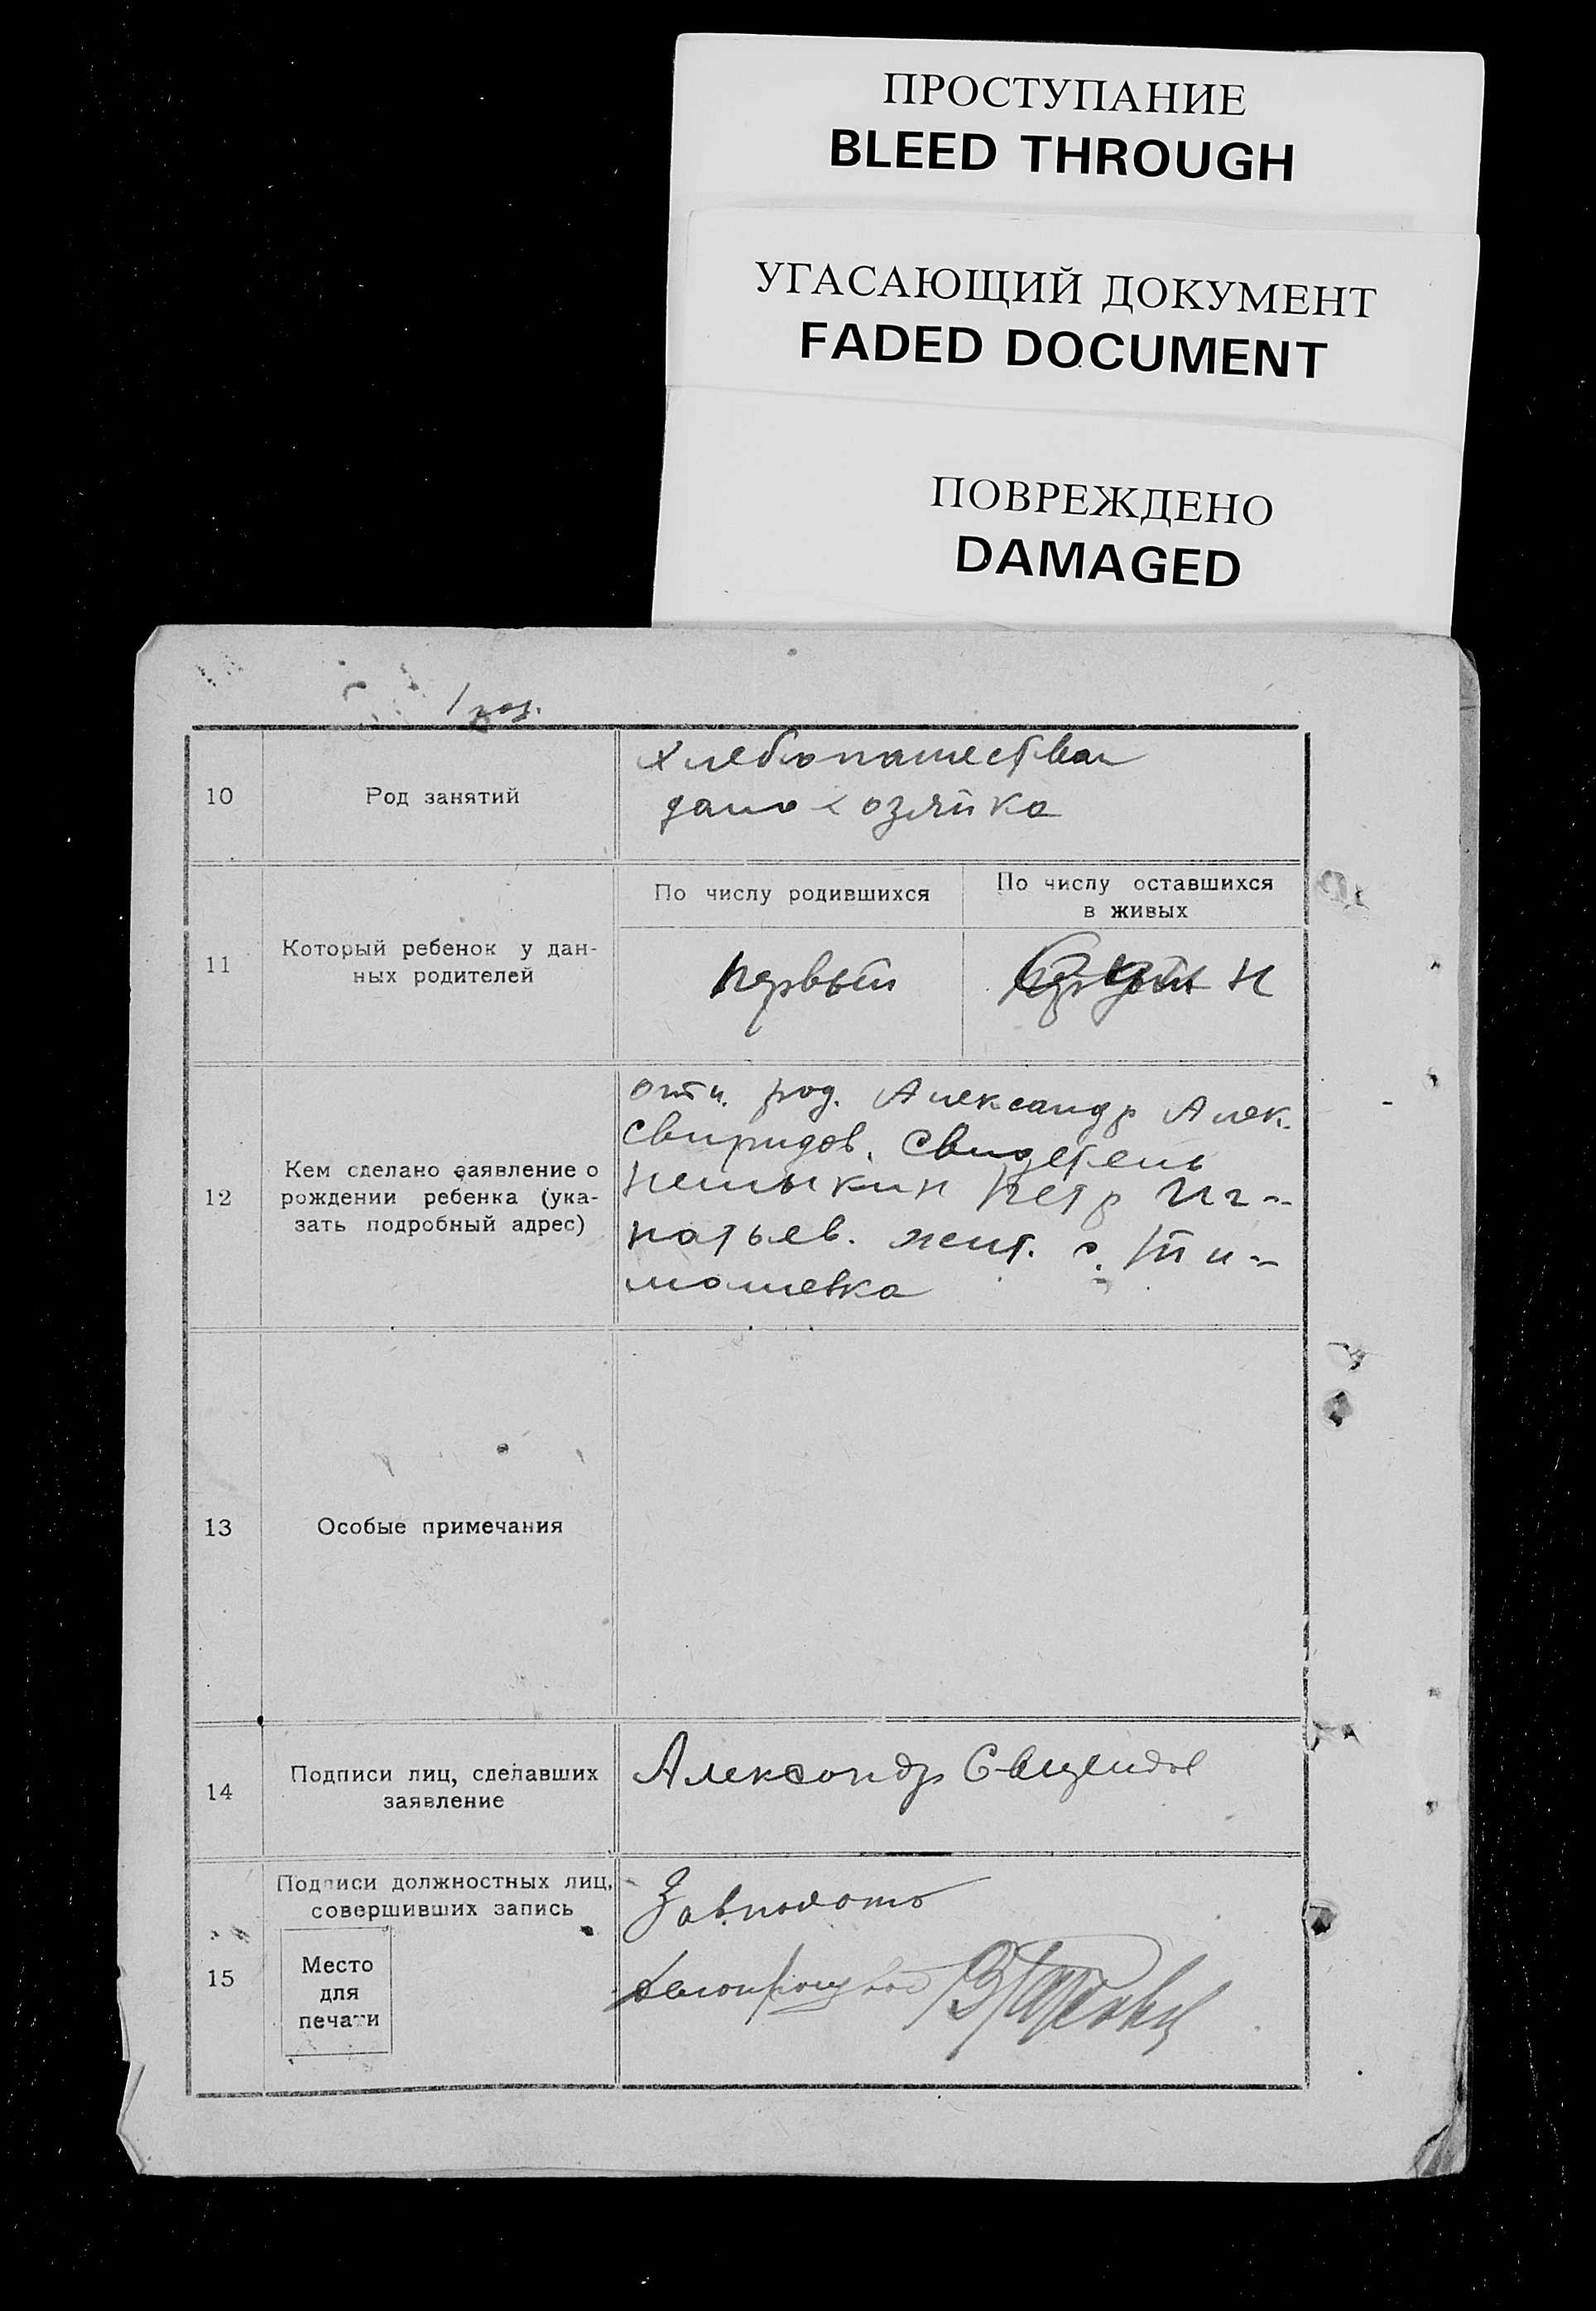 ПРОСТУПАНИЕ
BLEED THROUGH
УГАСАЮЩИЙ ДОКУМЕНТ
FADED DOCUMENT
ПОВРЕЖДЕНО
DAMAGED
10
Род занятий
хлебопашества
домохозяйка
11
Который ребенок у дан-
ных родителей
По числу родившихся
первый
По числу оставшихся
в живых
12
Кем сделано заявление о
рождении ребенка (ука-
зать подробный адрес)
род. Александр Алек.
Свиридов. Свидетель
Петр Иг-
натьев. жит. с. Ти-
мошевка
13
Особые примечания
14
Подписи лиц, сделавших
заявление
Александр Свиридов
15
Подписи должностных лиц,
совершивших запись
Место
для
печати